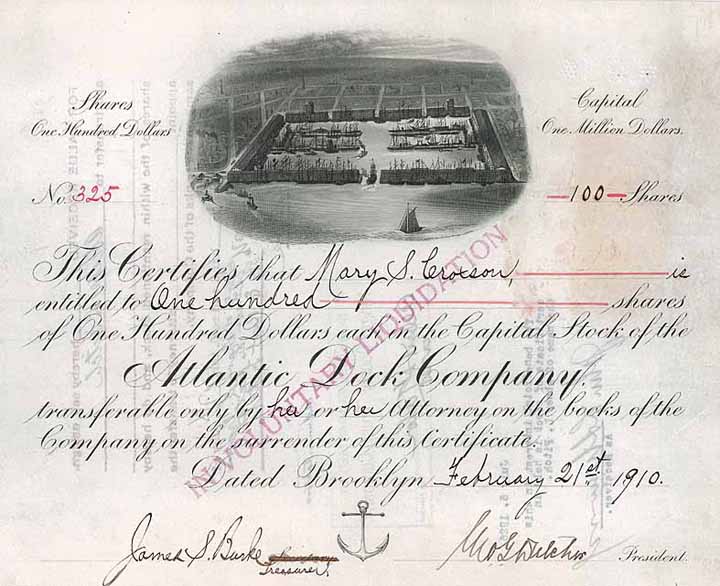 Shares
One Hundred Dollars
Capital
One Million Dollars.
No. 325
100 Shares
This Certifies that Mary S. Croxson, is
entitled to One hundred shares
of One Hundred Dollars each in the Capital Stock of the
Atlantic Dock Company,
transferable only by her or her Attorney on the books of the
Company on the surrender of this Certificate.
INVOLUNTARY LIQUIDATION
Dated Brooklyn February 21st 1910.
James S. Burke Secretary
Treasurer.
President.